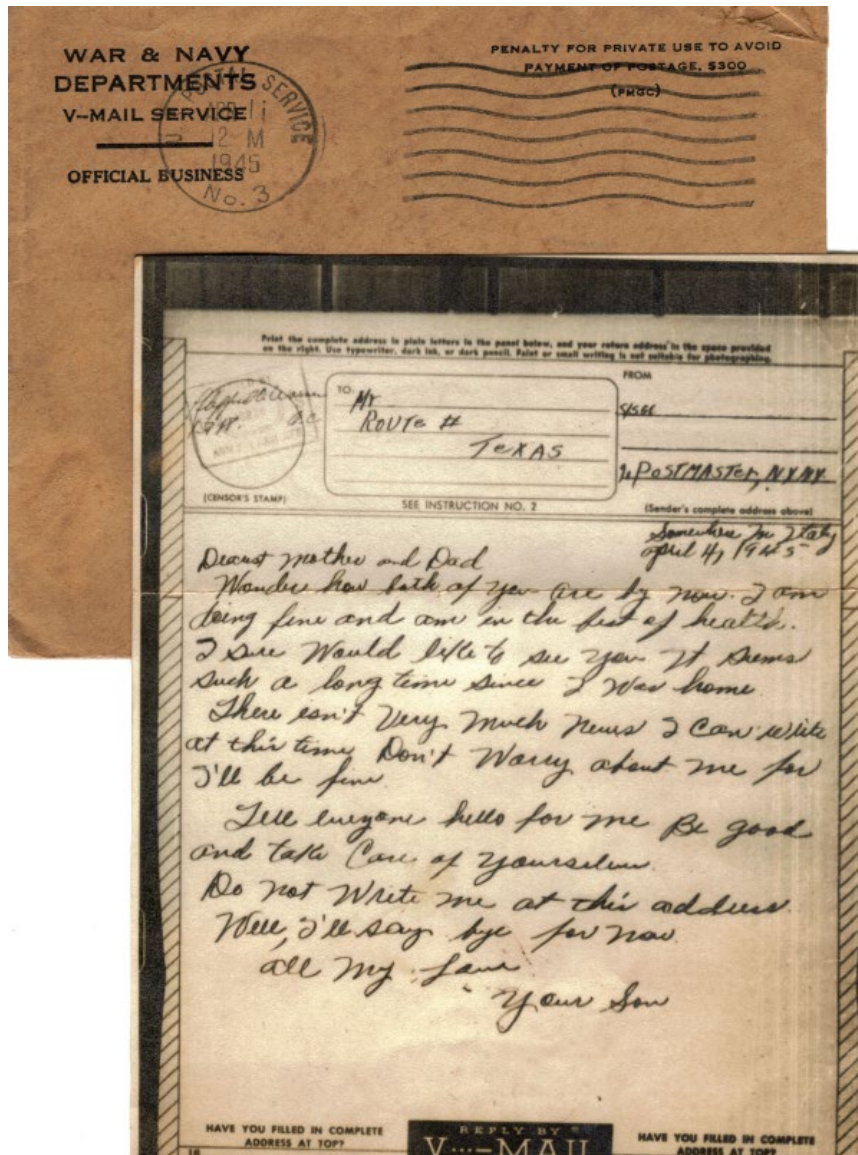 WAR & NAVY
DEPARTMENTS
V–MAIL SERVICE
OFFICIAL BUSINESS
POSTAL SERVICE
APR 11
12 M
1945
No. 3
PENALTY FOR PRIVATE USE TO AVOID
PAYMENT OF POSTAGE, $300
(PMGC)
Print the complete address in plain letters in the panel below, and your return address in the space provided
on the right. Use typewriter, dark ink, or dark pencil. Faint or small writing is not suitable for photographing.
(CENSOR'S STAMP)
TO:
Mr
ROUTe #
TeXAS
SEE INSTRUCTION NO. 2
FROM
% POSTMASTer, N.Y. NY
(Sender's complete address above)
Somewhere In Italy
april 4, 1945
Dearest Mother and Dad
Wonder how both of you are by now. I am
doing fine and am in the best of health.
I sure Would like to see you It seems
such a long time since I Was home.
There isn't Very Much News I Can write
at this time. Don't Worry about me for
I'll be fine.
Tell everyone hello for me Be good
and take Care of yourselves.
Do Not Write me at this address.
Well, I'll say bye for now.
all My Love
Your Son
HAVE YOU FILLED IN COMPLETE
ADDRESS AT TOP?
REPLY BY
V···–MAIL
HAVE YOU FILLED IN COMPLETE
ADDRESS AT TOP?